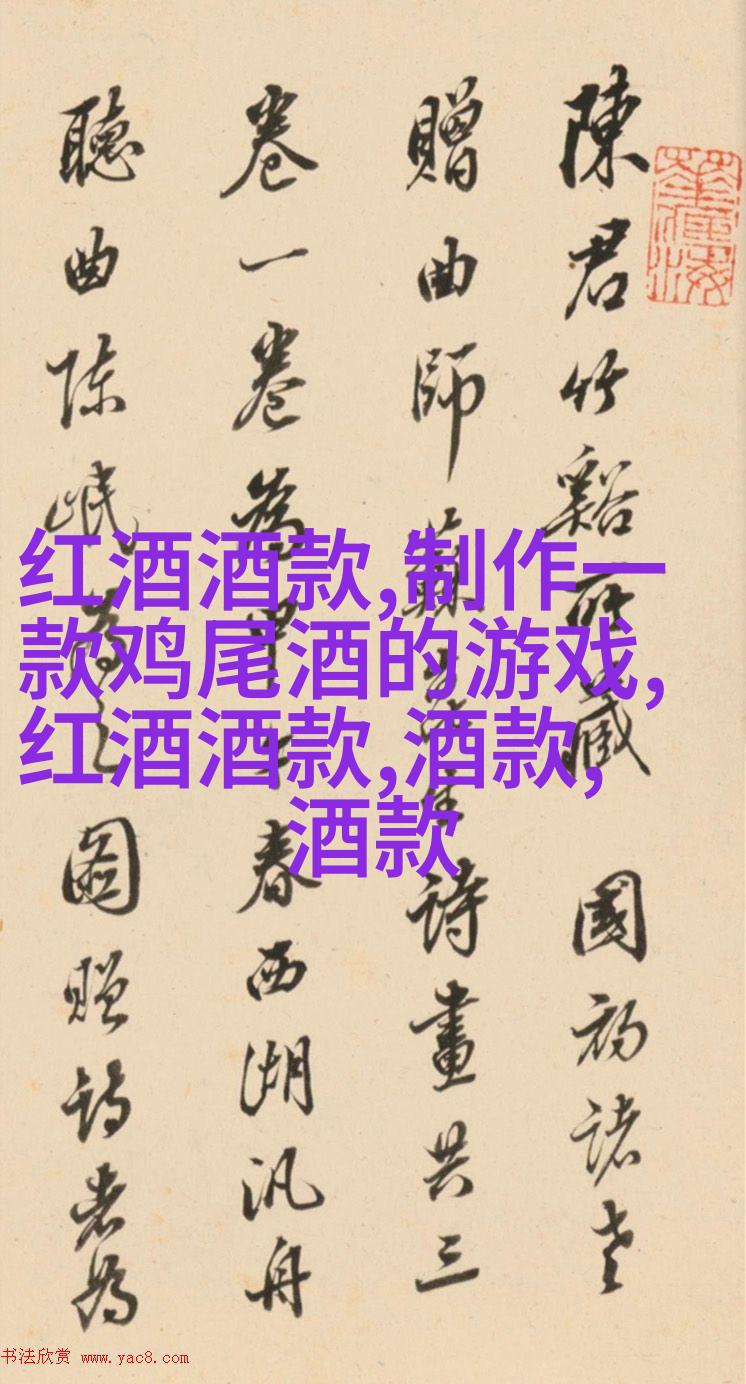 陳君竹谿所藏 國初諸老
贈曲師蘇生詩畫共三
卷一卷為春西湖汎舟
聽曲陳岷為之圖贈詩者為
红酒酒款,制作一
款鸡尾酒的游戏,
红酒酒款,酒款,
酒款
书法欣赏 www.yac8.com